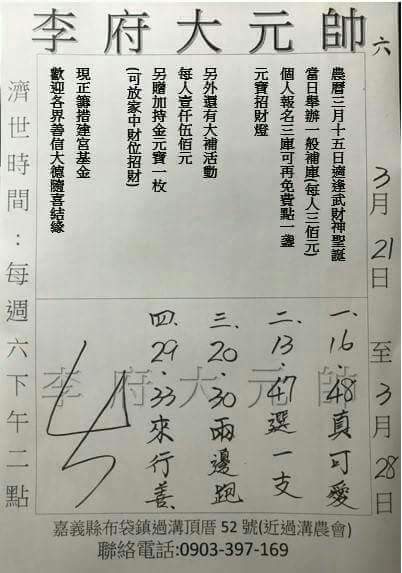 李府大元帥
六
3月21日至3月28日
農曆三月十五日適逢武財神聖誕
當日舉辦一般補庫(每人三佰元)
個人報名三庫可再免費點一盞
元寶招財燈
另外還有大補活動
每人壹仟伍佰元
另贈加持金元寶一枚
(可放家中財位招財)
現正籌措建宮基金
歡迎各界善信大德隨喜結緣
濟世時間：每週六下午二點
李府大元帥
一、16.48真可愛
二、13.47選一支
三、20.30兩邊跑
四、29.33來行善
嘉義縣布袋鎮過溝頂厝52號(近過溝農會)
聯絡電話:0903-397-169